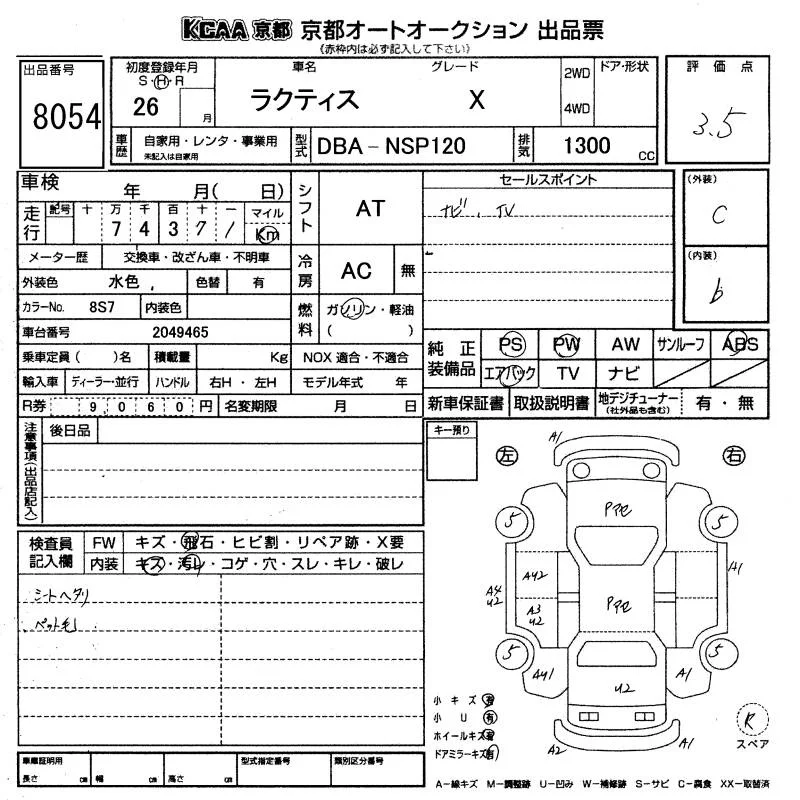 KCAA 京都 京都オートオークション 出品票
《赤枠内は必ず記入して下さい》
出品番号
8054
初度登録年月
S・H・R
26 月
車名
ラクティス
グレード
X
2WD
4WD
ドア・形状
評価点
3.5
車歴
自家用・レンタ・事業用
未記入は自家用
型式
DBA-NSP120
排気
1300 CC
車検 年 月( 日)
走行
記号 十 万 千 百 十 一 マイル
7 4 3 7 1 Km
メーター歴 交換車・改ざん車・不明車
外装色 水色 色替 有
カラーNo. 8S7 内装色
車台番号 2049465
乗車定員( )名 積載量 Kg NOX 適合・不適合
輸入車 ディーラー・並行 ハンドル 右H・左H モデル年式 年
R券 9,060円 名変期限 月 日
シフト
AT
冷房
AC 無
燃料
ガソリン・軽油
( )
セールスポイント
ナビ、TV
(外装)
C
(内装)
b
純正装備品
PS PW AW サンルーフ ABS
エアバック TV ナビ
新車保証書 取扱説明書 地デジチューナー(社外品も含む) 有・無
注意事項(出品店記入)
後日品
キー預り
左
右
検査員記入欄
FW キズ・飛石・ヒビ割・リペア跡・X要
内装 キズ・汚レ・コゲ・穴・スレ・キレ・破レ
シートヘタリ
ペット毛
A1
5
5
PPC
AU2
A4
U2
A3
U2
PPC
A1
5
5
AU1
U2
A1
A2
A1
小キズ 有
小U 有
ホイールキズ 有
ドアミラーキズ 有
R
スペア
車庫証明用
長さ cm 幅 cm 高さ cm
型式指定番号
類別区分番号
A-線キズ M-調整跡 U-凹み W-補修跡 S-サビ C-腐食 XX-取替済